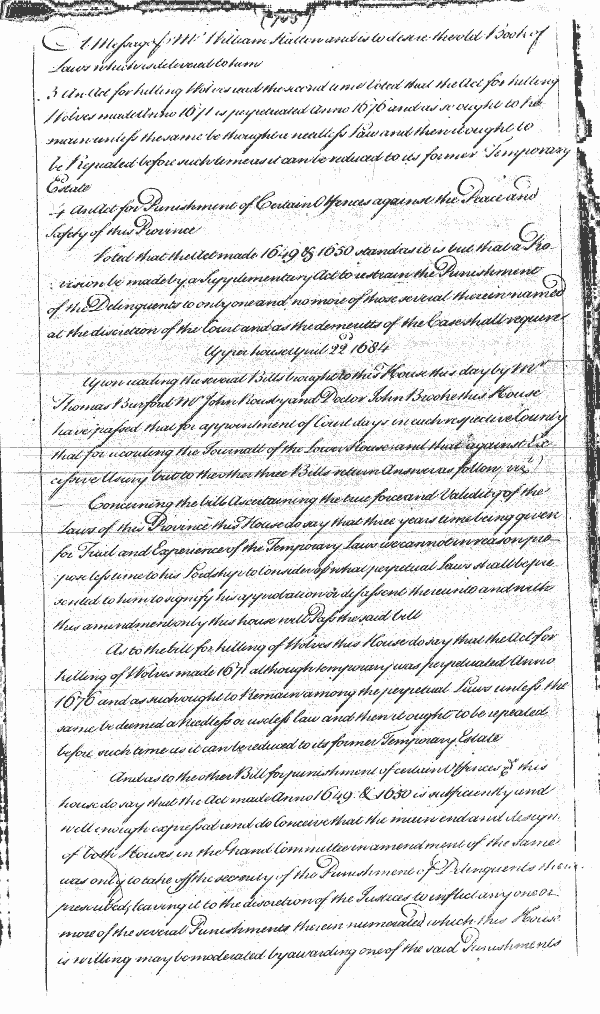 A Message from Mr. William Hatton and is to desire the old Book of
Laws which is delivered to him
3 An Act for killing Wolves read the second time Voted that the Act for killing
Wolves made Anno 1671 is perpetuated Anno 1676 and as so ought to Re
main unless the same be thought a needless Law and then it ought to
be Repealed before such time as it can be reduced to its former Temporary
Estate
4 An Act for Punishment of Certain Offences against the Peace and
Safety of this Province
Voted that the Act made 1649 & 1650 stand as it is but that a Pro
vision be made by a Supplementary Act to restrain the Punishment
of the Delinquents to only one and no more of those several therein named
at the discretion of the Court and as the demeritts of the Case shall require
Upper house April 22d 1684
Upon reading the several Bills brought to this House this day by Mr.
Thomas Burford Mr. John Rousby and Doctor John Brooke this House
have passed that for appointment of Court days in each respective County
that for recording the Journall of the Lower House and that against Ex
cessive Usury but to the other three Bills return Answer as follow, viz.
Concerning the bill Ascertaining the true force and Validity of the
Laws of this Province this House do say that three years time being given
for Triall and Experience of the Temporary Laws we cannot in reason pro
pose less time to his Lordship to Consider of what perpetual Laws shall be pre
sented to him to signify his approbation or disassent thereunto and with
this amendment only this house will Pass the said bill
As to the bill for killing of Wolves this House do say that the Act for
killing of Wolves made 1671 although temporary was perpetuated Anno
1676 and as such ought to Remain among the perpetual Laws unless the
same be deemed a Needless or useless law and then it ought to be repealed
before such time as it can be reduced to its former Temporary Estate
And as to the other Bill for punishment of certain Offences &c. this
house do say that the Act made Anno 1649 & 1650 is sufficiently and
well enough expressed and do Conceive that the main end and design
of both Houses in the Grand Committee in amendment of the same
was only to take off the severity of the Punishment of Delinquents therein
prescribed, leaving it to the discretion of the Justices to inflict any one or
more of the several Punishments therein numerated which this House
is willing may be moderated by awarding one of the said Punishments